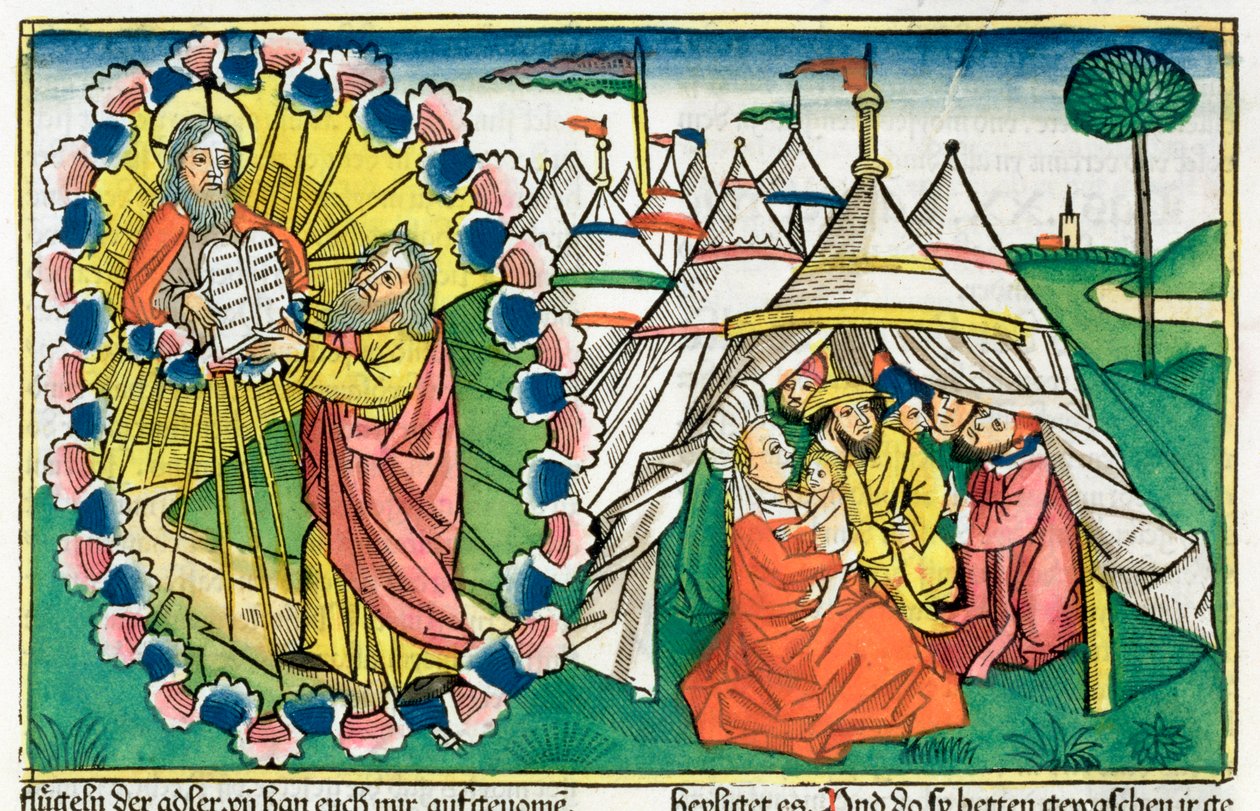 flůgeln der adler. vñ han euch mir aufgenomē.
heyliget es. Und do sy hetten gewaschen ir ge